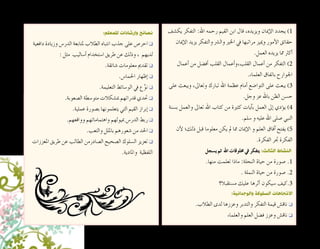 1) يجدد الإيمان ويزيده، قال ابن القيم رحمه الله: التفكر يكشف
حقائق الأمور ويميز مراتبها في الخير والشر والتفكر يزيد الإيمان
أكثر مما يزيده العمل.
2) التفكر من أعمال القلب، وأعمال القلب أفضل من أعمال
الجوارح باتفاق العلماء.
3) يبعث على التواضع أمام عظمة الله تبارك وتعالى، ويبعث على
حسن الظن بالله عز وجل.
4) يؤدي إلى العمل بآيات كثيرة من كتاب الله تعالى والعمل بسنة
النبي صلى الله عليه و سلم.
5) يفتح آفاق العلم و الإيمان مما لم يكن معلوما قبل ذلك؛ لأن
الفكرة تجر الفكرة.
النشاط الثالث: يفكر في مخلوقات الله ثم يسجل
1. صورة من حياة النحلة: ماذا تعلمت منها.
2. صورة من حياة النملة .
3. كيف سيكون أثرها عليك مستقبلا؟
الاتجاهات السلوكية والوجدانية:
ن ناقش قيمة التفكر والتدبر وعززها لدى الطلاب.
ن ناقش وعزز فضل العلم والعلماء
نصائح وإرشادات للمعلم:
ن احرص على جذب انتباه الطلاب لمتابعة الدرس وزيادة دافعية
لديهم ، وذلك عن طريق استخدام أساليب مثل :
ن تقديم معلومات شائقة.
ن إظهار الحماس.
ن نوع في الوسائط التعليمية.
ن تحدي قدراتهم بمشكلات متوسطة الصعوبة.
ن إبراز القيم التي يتعلمونها بصورة عملية.
ن ربط الدرس بميولهم واهتماماتهم وواقعهم.
ن الحد من شعورهم بالملل والتعب.
ن تعزيز السلوك الصحيح الصادر من الطالب عن طريق المعززات
اللفظية والمادية.